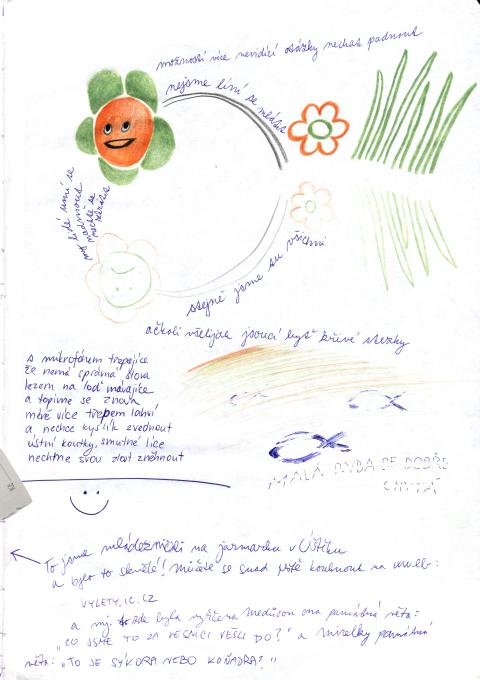 možností více nevidící otázky nechat padnout
nejsme líní se
lidé umí se
nadmout
stejně jsme su všichni
ačkoli všelijak jsoucí byť křivé stezky
s mikrofonem třepajíce
že nemá správná slova
lezem na loď mávajíce
a topíme se znova
měně více třepem lahví
a nechce kyslík zvednout
ústní koutky, smutné líce
nechtíme svou zlost zněhnout
MALÁ RYBA SE DOBŘE
CHYTÁ
To jsme mládežníčili na jarmarku v Ústíku
a bylo to skvělé! můžete se snad ještě kouknout na web:
VYLETY.IC.CZ
a mj. zde byla vyřčena Medizon ona památná věta:
"CO JSME TO ZA VESNICI VEŠLI DO?" a Mirelky památná
věta: "TO JE SÝKORA NEBO KOŇADRA?"